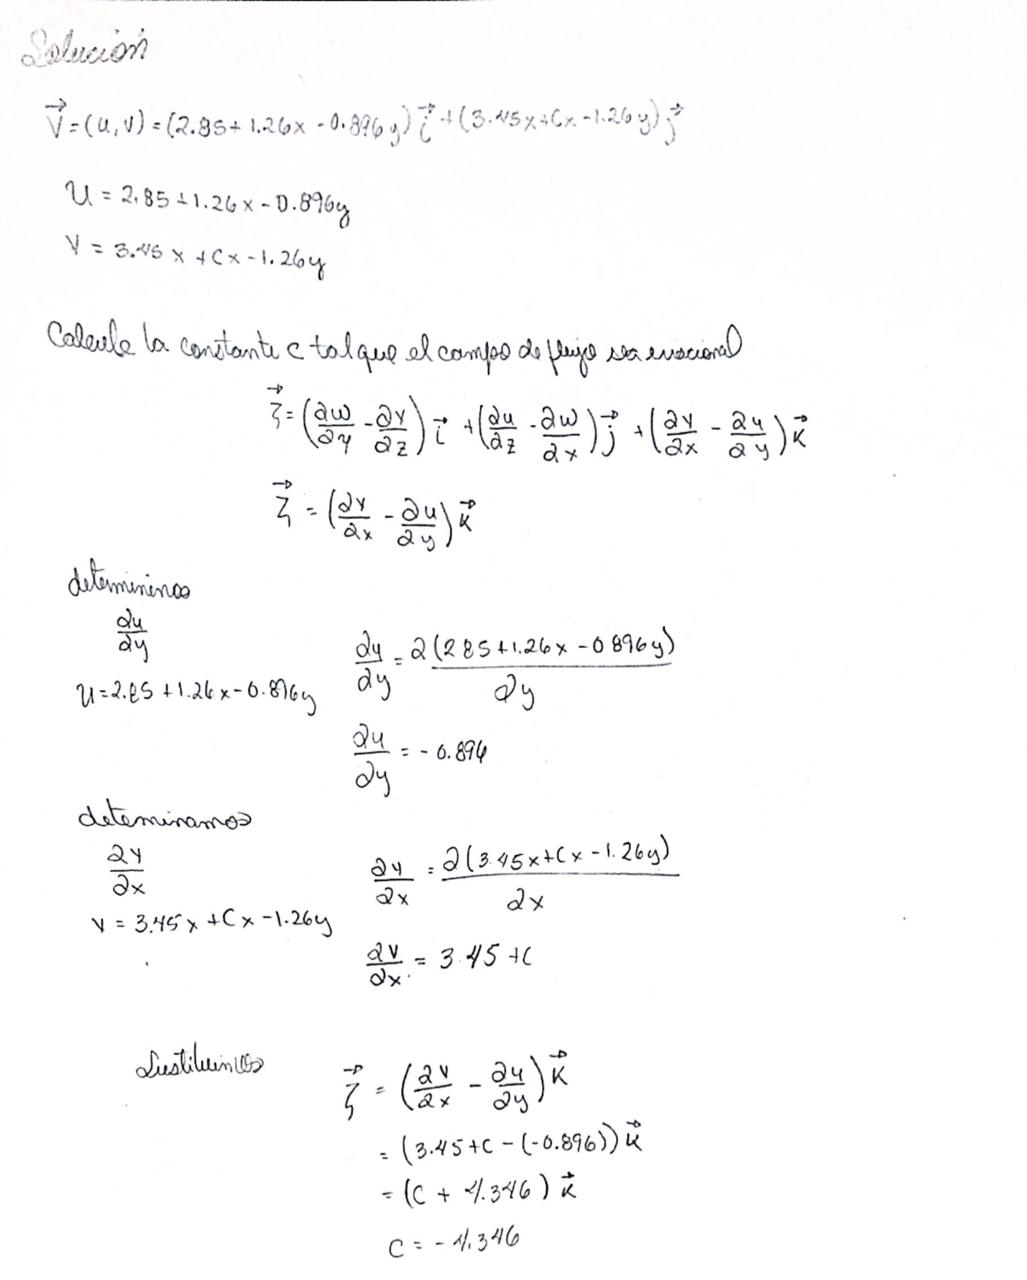 Solución
V⃗=(u,v)=(2.85+1.26x-0.896y)i⃗+(3.45x+Cx-1.26y)j⃗
U=2.85+1.26x-0.896y
V=3.45x+Cx-1.26y
Calcule la constante c tal que el campo de flujo sea irrocional
ζ⃗=(∂w/∂y-∂v/∂z)i⃗+(∂u/∂z-∂w/∂x)j⃗+(∂v/∂x-∂u/∂y)k⃗
ζ⃗=(∂v/∂x-∂u/∂y)k⃗
determininos
∂u/∂y
∂u/∂y=∂(2.85+1.26x-0.896y)/∂y
U=2.85+1.26x-0.896y
∂u/∂y=-0.896
deteminamos
∂v/∂x
∂v/∂x=∂(3.45x+Cx-1.26y)/∂x
V=3.45x+Cx-1.26y
∂v/∂x=3.45+C
Sustituimos
ζ⃗=(∂v/∂x-∂u/∂y)k⃗
=(3.45+C-(-0.896))k⃗
=(C+4.346)k⃗
C=-4.346